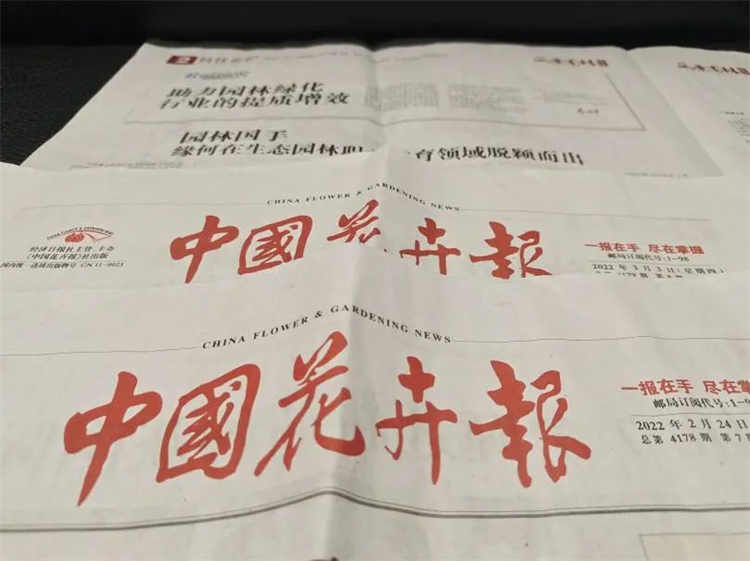 助力园林绿化
行业的提质增效
园林国手
缘何在生态园林
育领域脱颖而出
CHINA FLOWER & GARDENING NEWS
经济日报社主管、主办
《中国花卉报》社出版
CN 11-0023
中國花卉報
一报在手 尽在掌握
邮局订阅代号:1-98
2022 年 3 月 3 日(星期四)
CHINA FLOWER & GARDENING NEWS
中國花卉報
一报在手 尽在掌
邮局订阅代号:1-9
2022 年 2 月 24 日
总第 4178 期 第 7